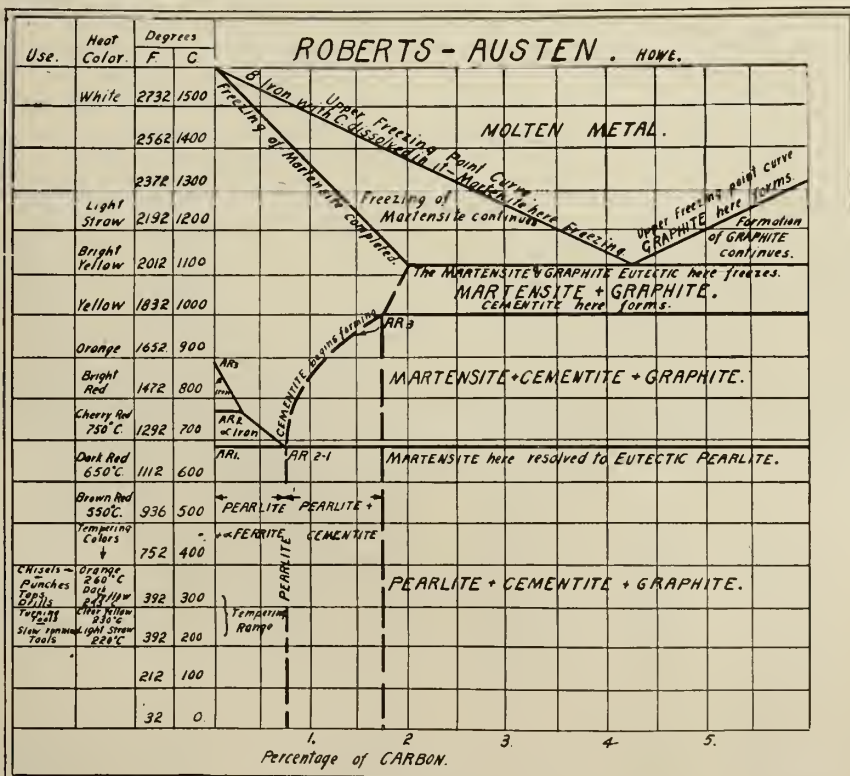 ROBERTS - AUSTEN. HOWE.
Use. Heat Color. Degrees
F. C
White 2732 1500
2562 1400
2372 1300
Light Straw 2192 1200
Bright Yellow 2012 1100
Yellow 1832 1000
Orange 1652 900
Bright Red 1472 800
Cherry Red 750°C. 1292 700
Dark Red 650°C. 1112 600
Brown Red 550°C. 936 500
Tempering Colors 752 400
Chisels Punches Orange 260°C
Taps Drills Dark Yellow 392 300
Turning Tools Clear Yellow 230°C
Slow running Tools Light Straw 220°C 392 200
212 100
32 0.
B Iron with C. dissolved in it - Martensite here Freezing
Upper Freezing Point Curve.
MOLTEN METAL.
Freezing of Martensite completed.
Freezing of
Martensite continues
Upper Freezing point curve
GRAPHITE here forms.
Formation
of GRAPHITE
continues.
The MARTENSITE & GRAPHITE EUTECTIC here freezes.
MARTENSITE + GRAPHITE.
CEMENTITE here forms.
AR3
CEMENTITE begins forming
AR3
Iron
MARTENSITE + CEMENTITE + GRAPHITE.
AR2
∝ Iron
AR1.
AR 2-1
MARTENSITE here resolved to EUTECTIC PEARLITE.
PEARLITE PEARLITE +
+ ∝ FERRITE CEMENTITE
PEARLITE
PEARLITE + CEMENTITE + GRAPHITE.
Tempering
Range
1. 2 3. 4 5.
Percentage of CARBON.